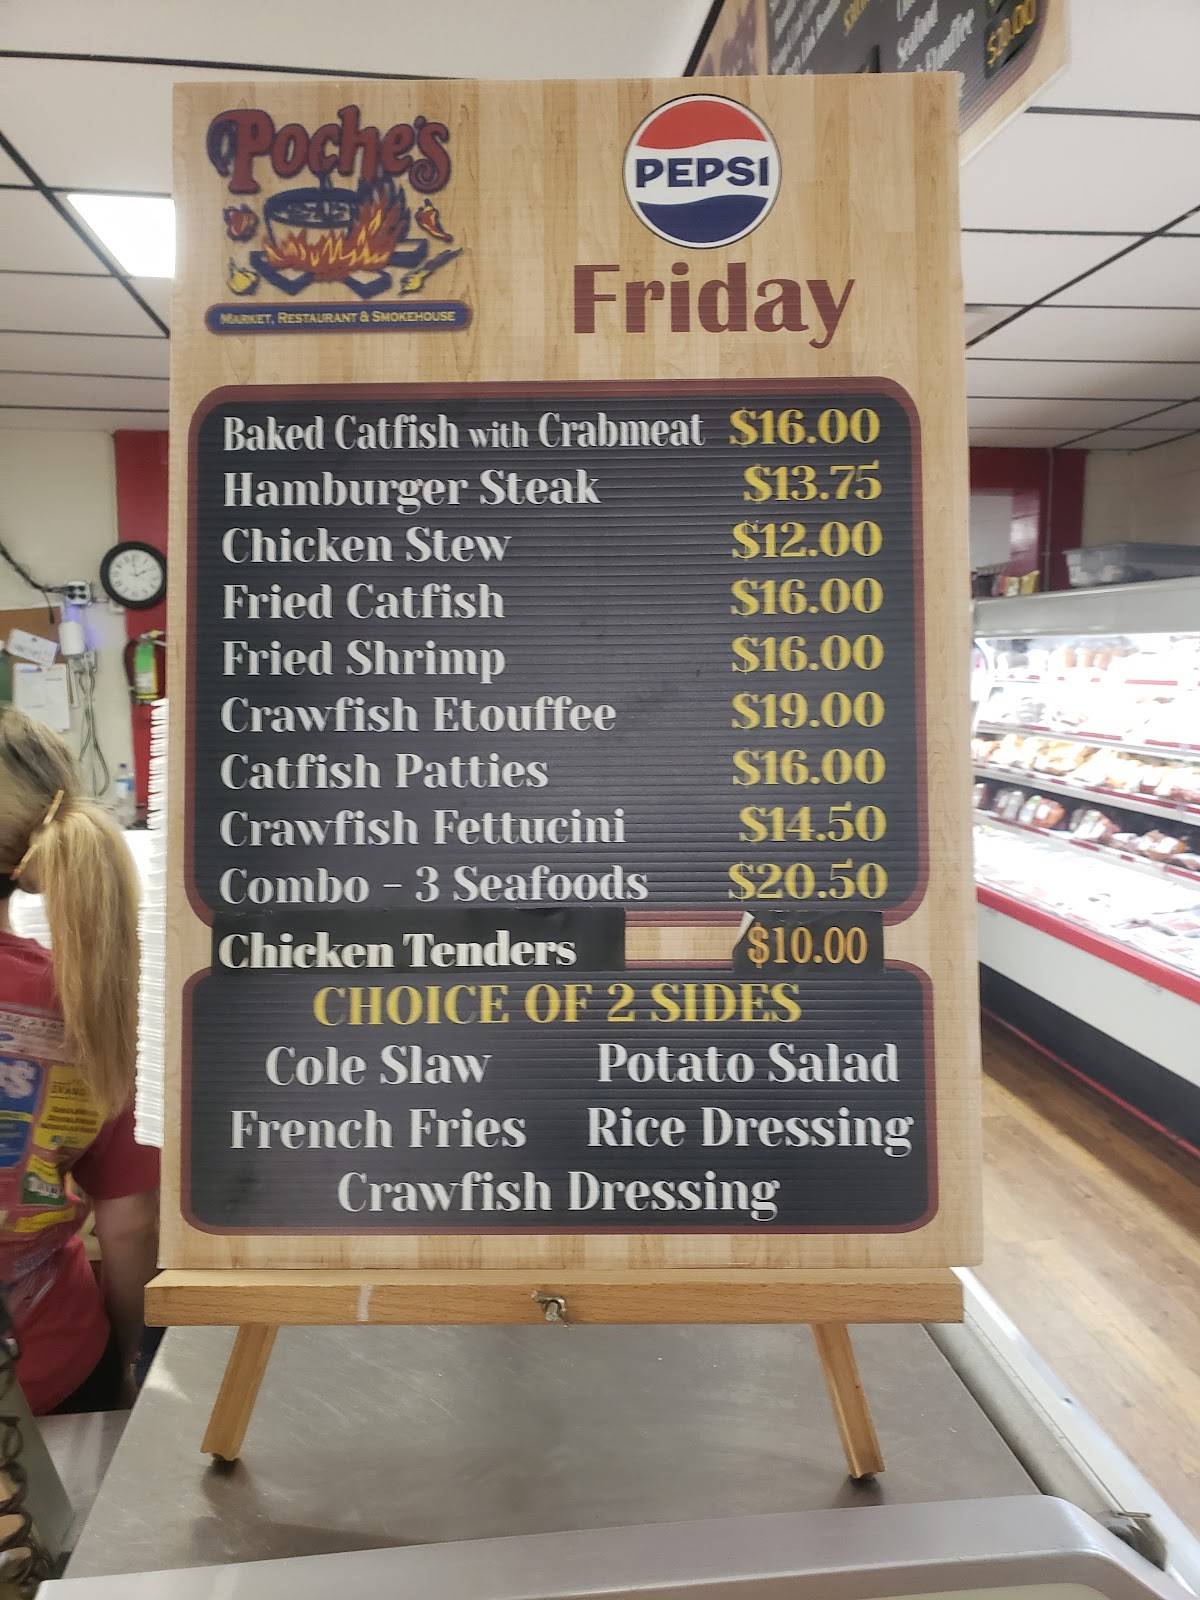 Poche's
MARKET, RESTAURANT & SMOKEHOUSE
PEPSI
Friday
Baked Catfish with Crabmeat $16.00
Hamburger Steak $13.75
Chicken Stew $12.00
Fried Catfish $16.00
Fried Shrimp $16.00
Crawfish Etouffee $19.00
Catfish Patties $16.00
Crawfish Fettucini $14.50
Combo - 3 Seafoods $20.50
Chicken Tenders $10.00
CHOICE OF 2 SIDES
Cole Slaw Potato Salad
French Fries Rice Dressing
Crawfish Dressing
Seafood
$20.00